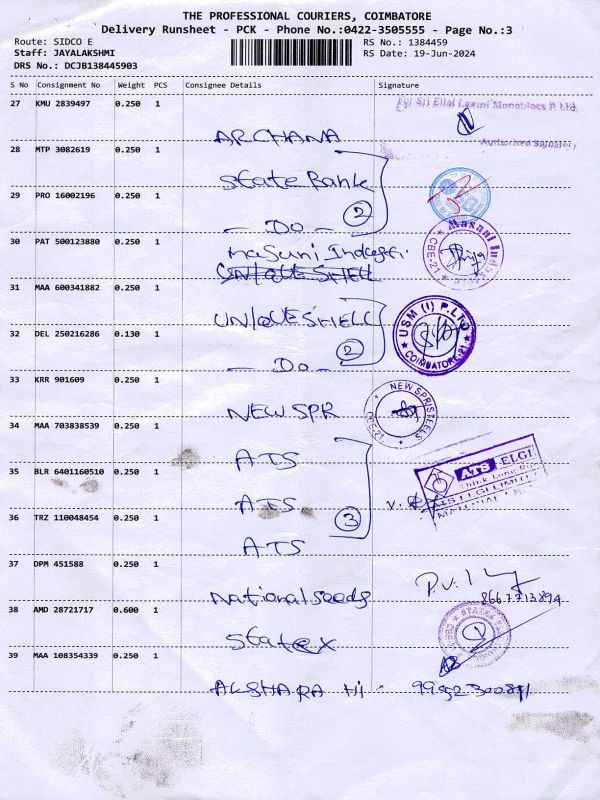 THE PROFESSIONAL COURIERS, COIMBATORE
Delivery Runsheet - PCK - Phone No.:0422-3505555 - Page No.:3
Route: SIDCO E
Staff: JAYALAKSHMI
DRS No.: DCJB138445903
RS No.: 1384459
RS Date: 19-Jun-2024
S No Consignment No Weight PCS Consignee Details Signature
27 KMU 2839497 0.250 1 ARCHANA
Authorised Signatory
28 MTP 3082619 0.250 1 State Bank
29 PRO 16002196 0.250 1 — Do — 2
30 PAT 500123880 0.250 1 Masuni
CBE-21
31 MAA 600341882 0.250 1 UNIQUE SHELL
32 DEL 250216286 0.130 1 — Do — 2
USM (I) P.LTD
COIMBATORE-21
33 KRR 901609 0.250 1 NEW SPR
NEW SPRISTEELS
CBE-21
34 MAA 703838539 0.250 1 ATS
35 BLR 6401160510 0.250 1 ATS
36 TRZ 110048454 0.250 1 ATS 3
ATS ELGI
ATS ELGI LIMITED
37 DPM 451588 0.250 1 National Seeds
8667713894
38 AMD 28721717 0.600 1 Statex
39 MAA 108354339 0.250 1 AKSHARA Hi